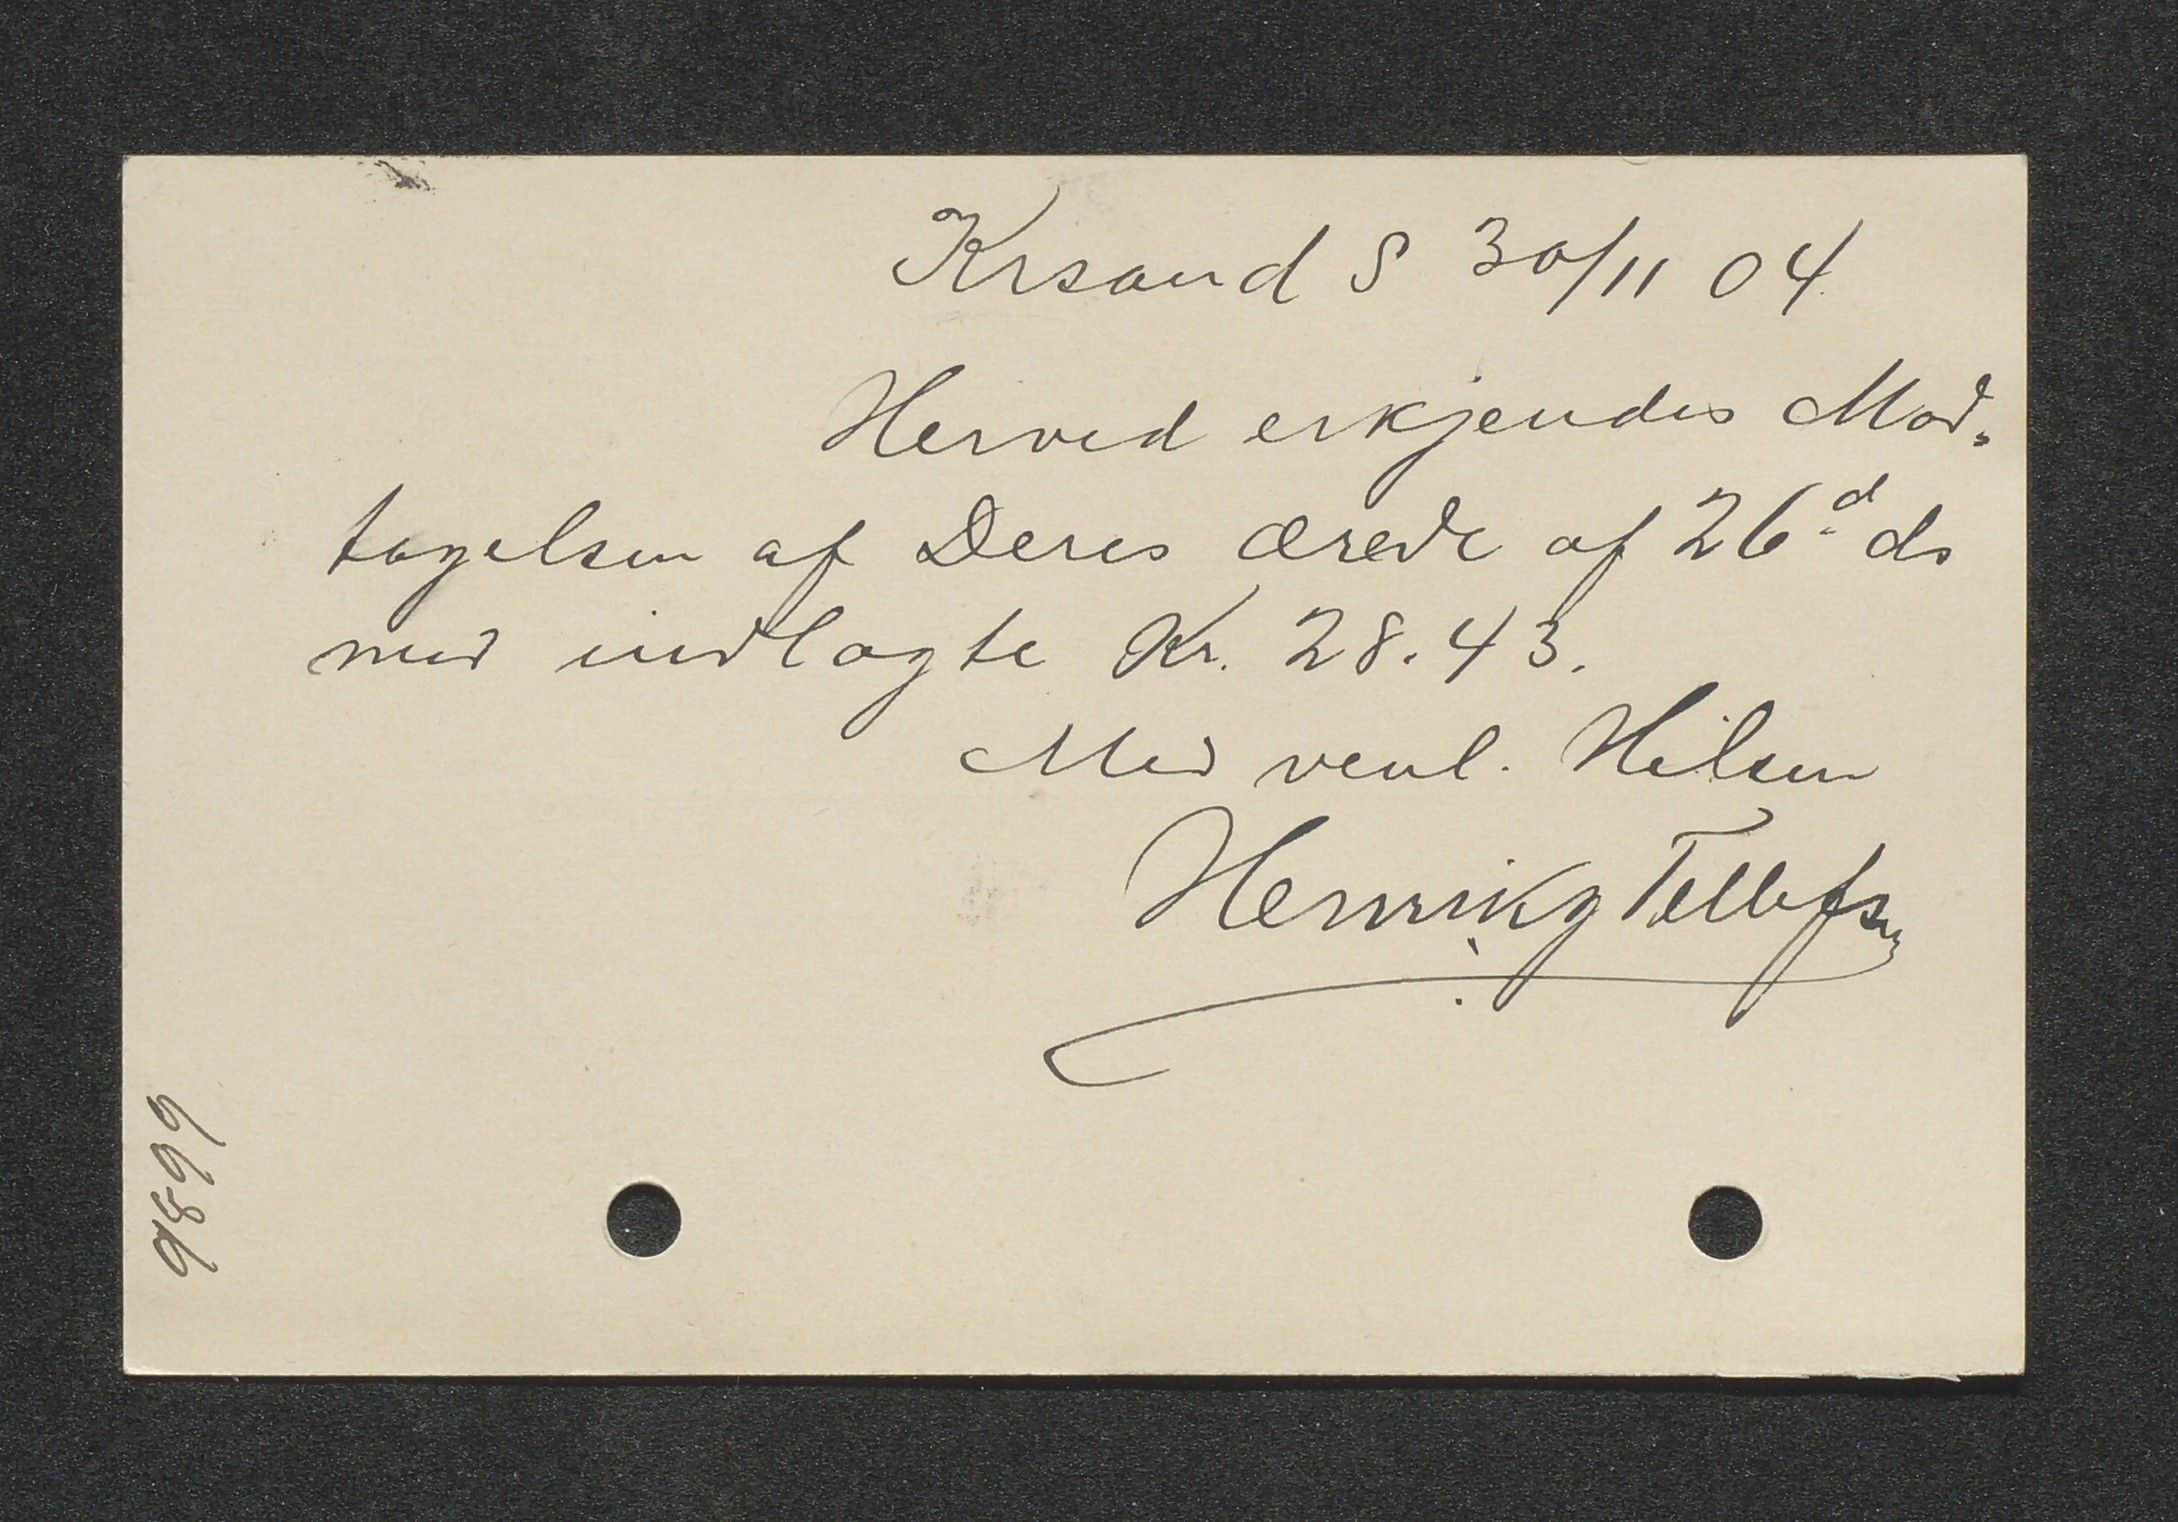 Krsand S 30/11 04.
Herved erkjendes Mod-
tagelsen af Deres ærede af 26d ds
med indlagte Kr. 28.43.
Med venl. Hilsen
Henrik Tellefsen
9899